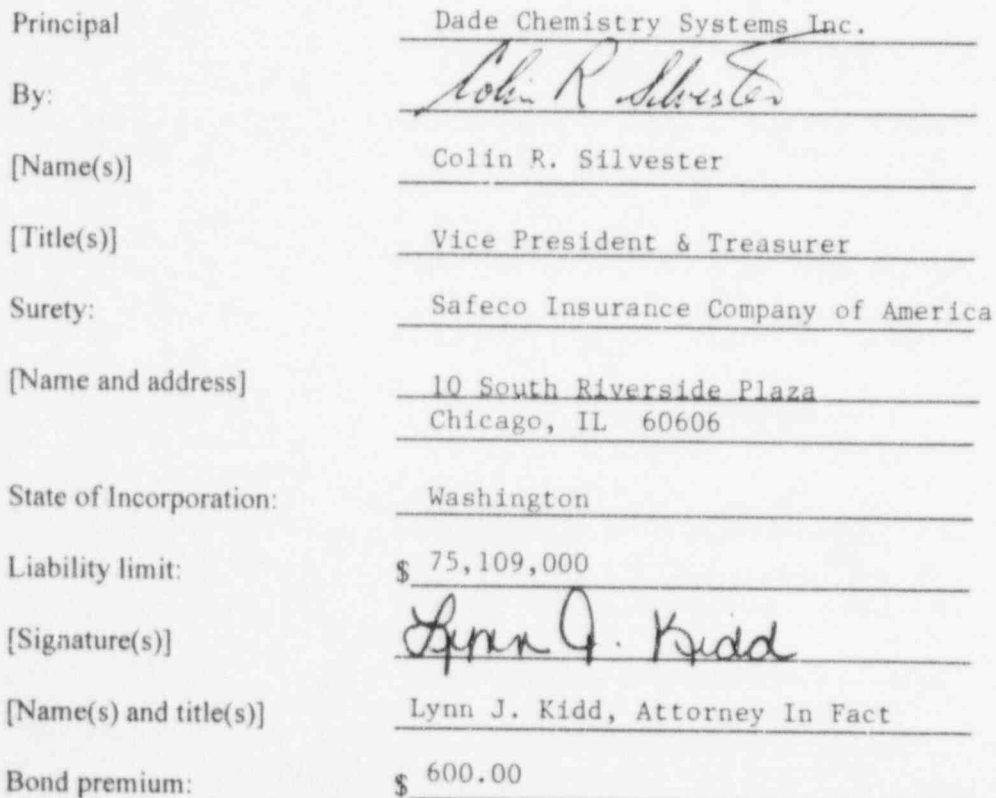 Principal Dade Chemistry Systems Inc.
By: Colin R Silvester
[Name(s)] Colin R. Silvester
[Title(s)] Vice President & Treasurer
Surety: Safeco Insurance Company of America
[Name and address] 10 South Riverside Plaza
Chicago, IL 60606
State of Incorporation: Washington
Liability limit: $ 75,109,000
[Signature(s)] Lynn J. Kidd
[Name(s) and title(s)] Lynn J. Kidd, Attorney In Fact
Bond premium: $ 600.00